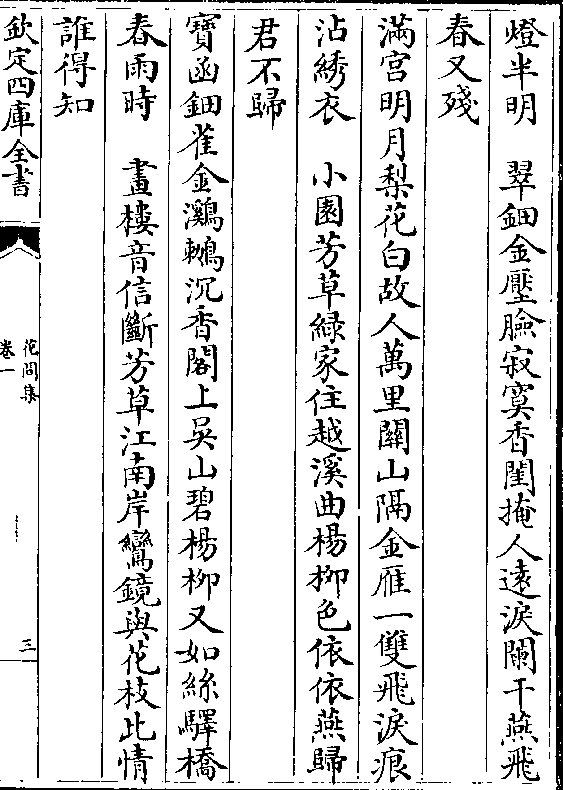 燈半明　翠鈿金壓臉寂寞香閨掩人遠淚闌干燕飛
春又殘
滿宫明月梨花白故人萬里關山隔金雁一雙飛淚痕
沾綉衣　小園芳草緑家住越溪曲楊柳色依依燕歸
君不歸
寶函鈿雀金鸂鶒沉香閣上吳山碧楊柳又如絲驛橋
春雨時　畫樓音信斷芳草江南岸鸞鏡與花枝此情
誰得知
欽定四庫全書
花間集
卷一
三